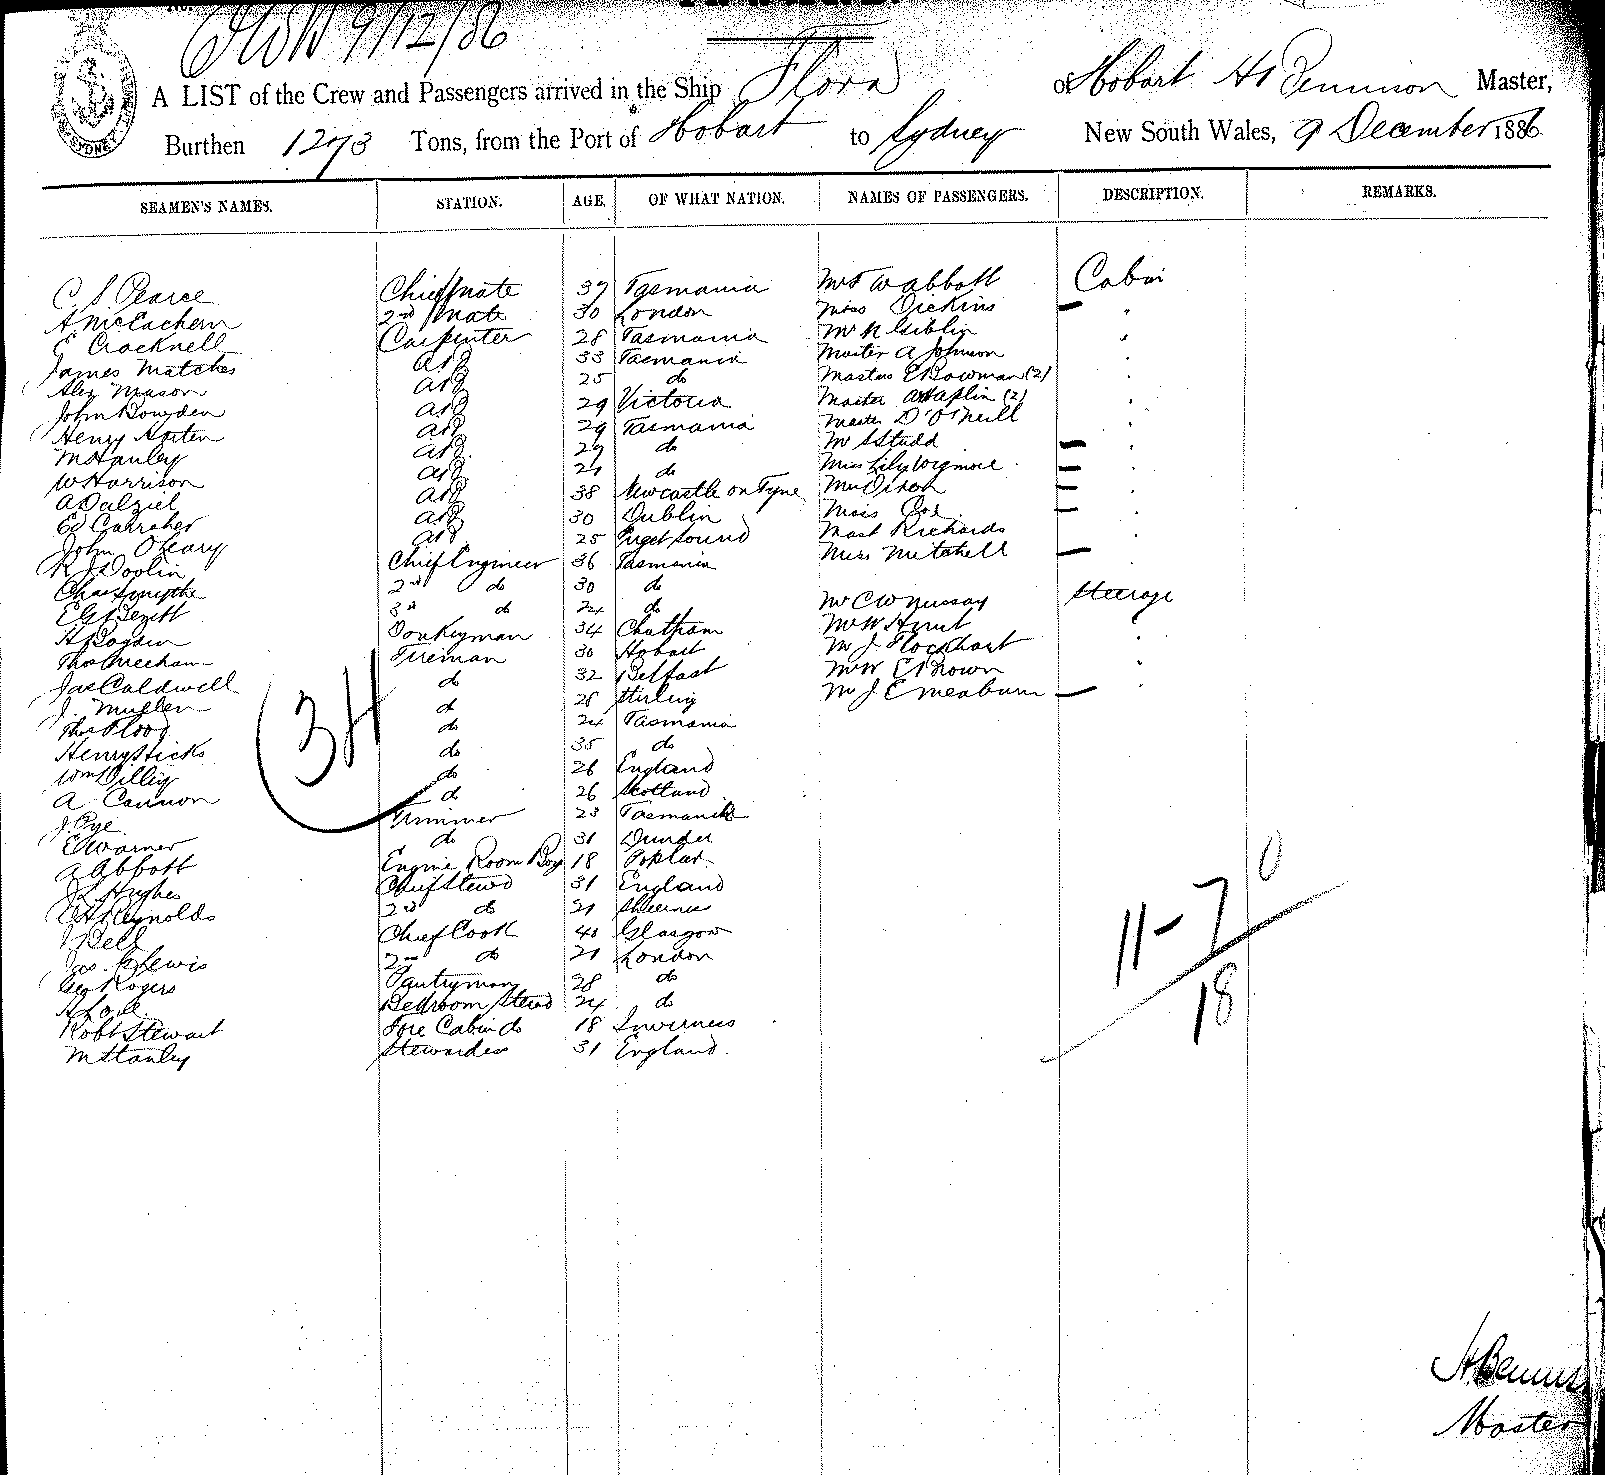 9/12/86
SYDNEY
A LIST of the Crew and Passengers arrived in the Ship Flora of Hobart Master,
Burthen 1273 Tons, from the Port of Hobart to Sydney New South Wales, 9 December 1886
SEAMEN'S NAMES. STATION. AGE. OF WHAT NATION. NAMES OF PASSENGERS. DESCRIPTION. REMARKS.
C. S. Pearce Chief mate 37 Tasmania W Abbott Cabin
A McEachern 2nd mate 30 London Miss Dickins —
E Cracknell Carpenter 28 Tasmania Mr N Giblin
James Matches AB 33 Tasmania Master A Johnson
Alex Mason AB 25 do Masters E Bowman (2)
John Bowden AB 29 Victoria Master Haplin (2)
Henry AB 29 Tasmania Master D O'Neill
M Hanley AB 29 do Mr S Studd —
W Harrison AB 21 do Miss Lily Wigmore —
A Dalziel AB 38 Newcastle on Tyne Dixon —
Ed Carraher AB 30 Dublin Miss Cox —
John O'Leary AB 25 Puget Sound Mast Richards
R J Doolin Chief Engineer 36 Tasmania Miss Mitchell —
Chas Smythe 2nd do 30 do
3rd do 24 do Mr C W Murray Steerage
H Bogden Donkeyman 34 Chatham Mr W Hunt
Thos Meehan Fireman 30 Hobart Mr J Flockhart
Jas Caldwell do 32 Belfast Mr W E Brown
J. Mullen do 28 Stirling Mr J E Meaburn —
Thos Flood do 24 Tasmania
Henry Hicks do 35 do
Wm Dilley do 26 England
A Cannon do 26 Scotland
J. Pye Trimmer 23 Tasmania
E Warner do 31 Dundee
A Abbott Engine Room Boy 18 Poplar
J L Hughes Chief Stewd 31 England
Reynolds 2nd do 21 Sheerness
Bell Chief Cook 40 Glasgow
Jas. Lewis 2nd do 21 London
Geo Rogers Pantryman 28 do
Bedroom Stewd 24 do
Robt Stewart Fore Cabin do 18 Inverness
M Stanley Stewardess 31 England.
34
11 - 7 0
18
Master